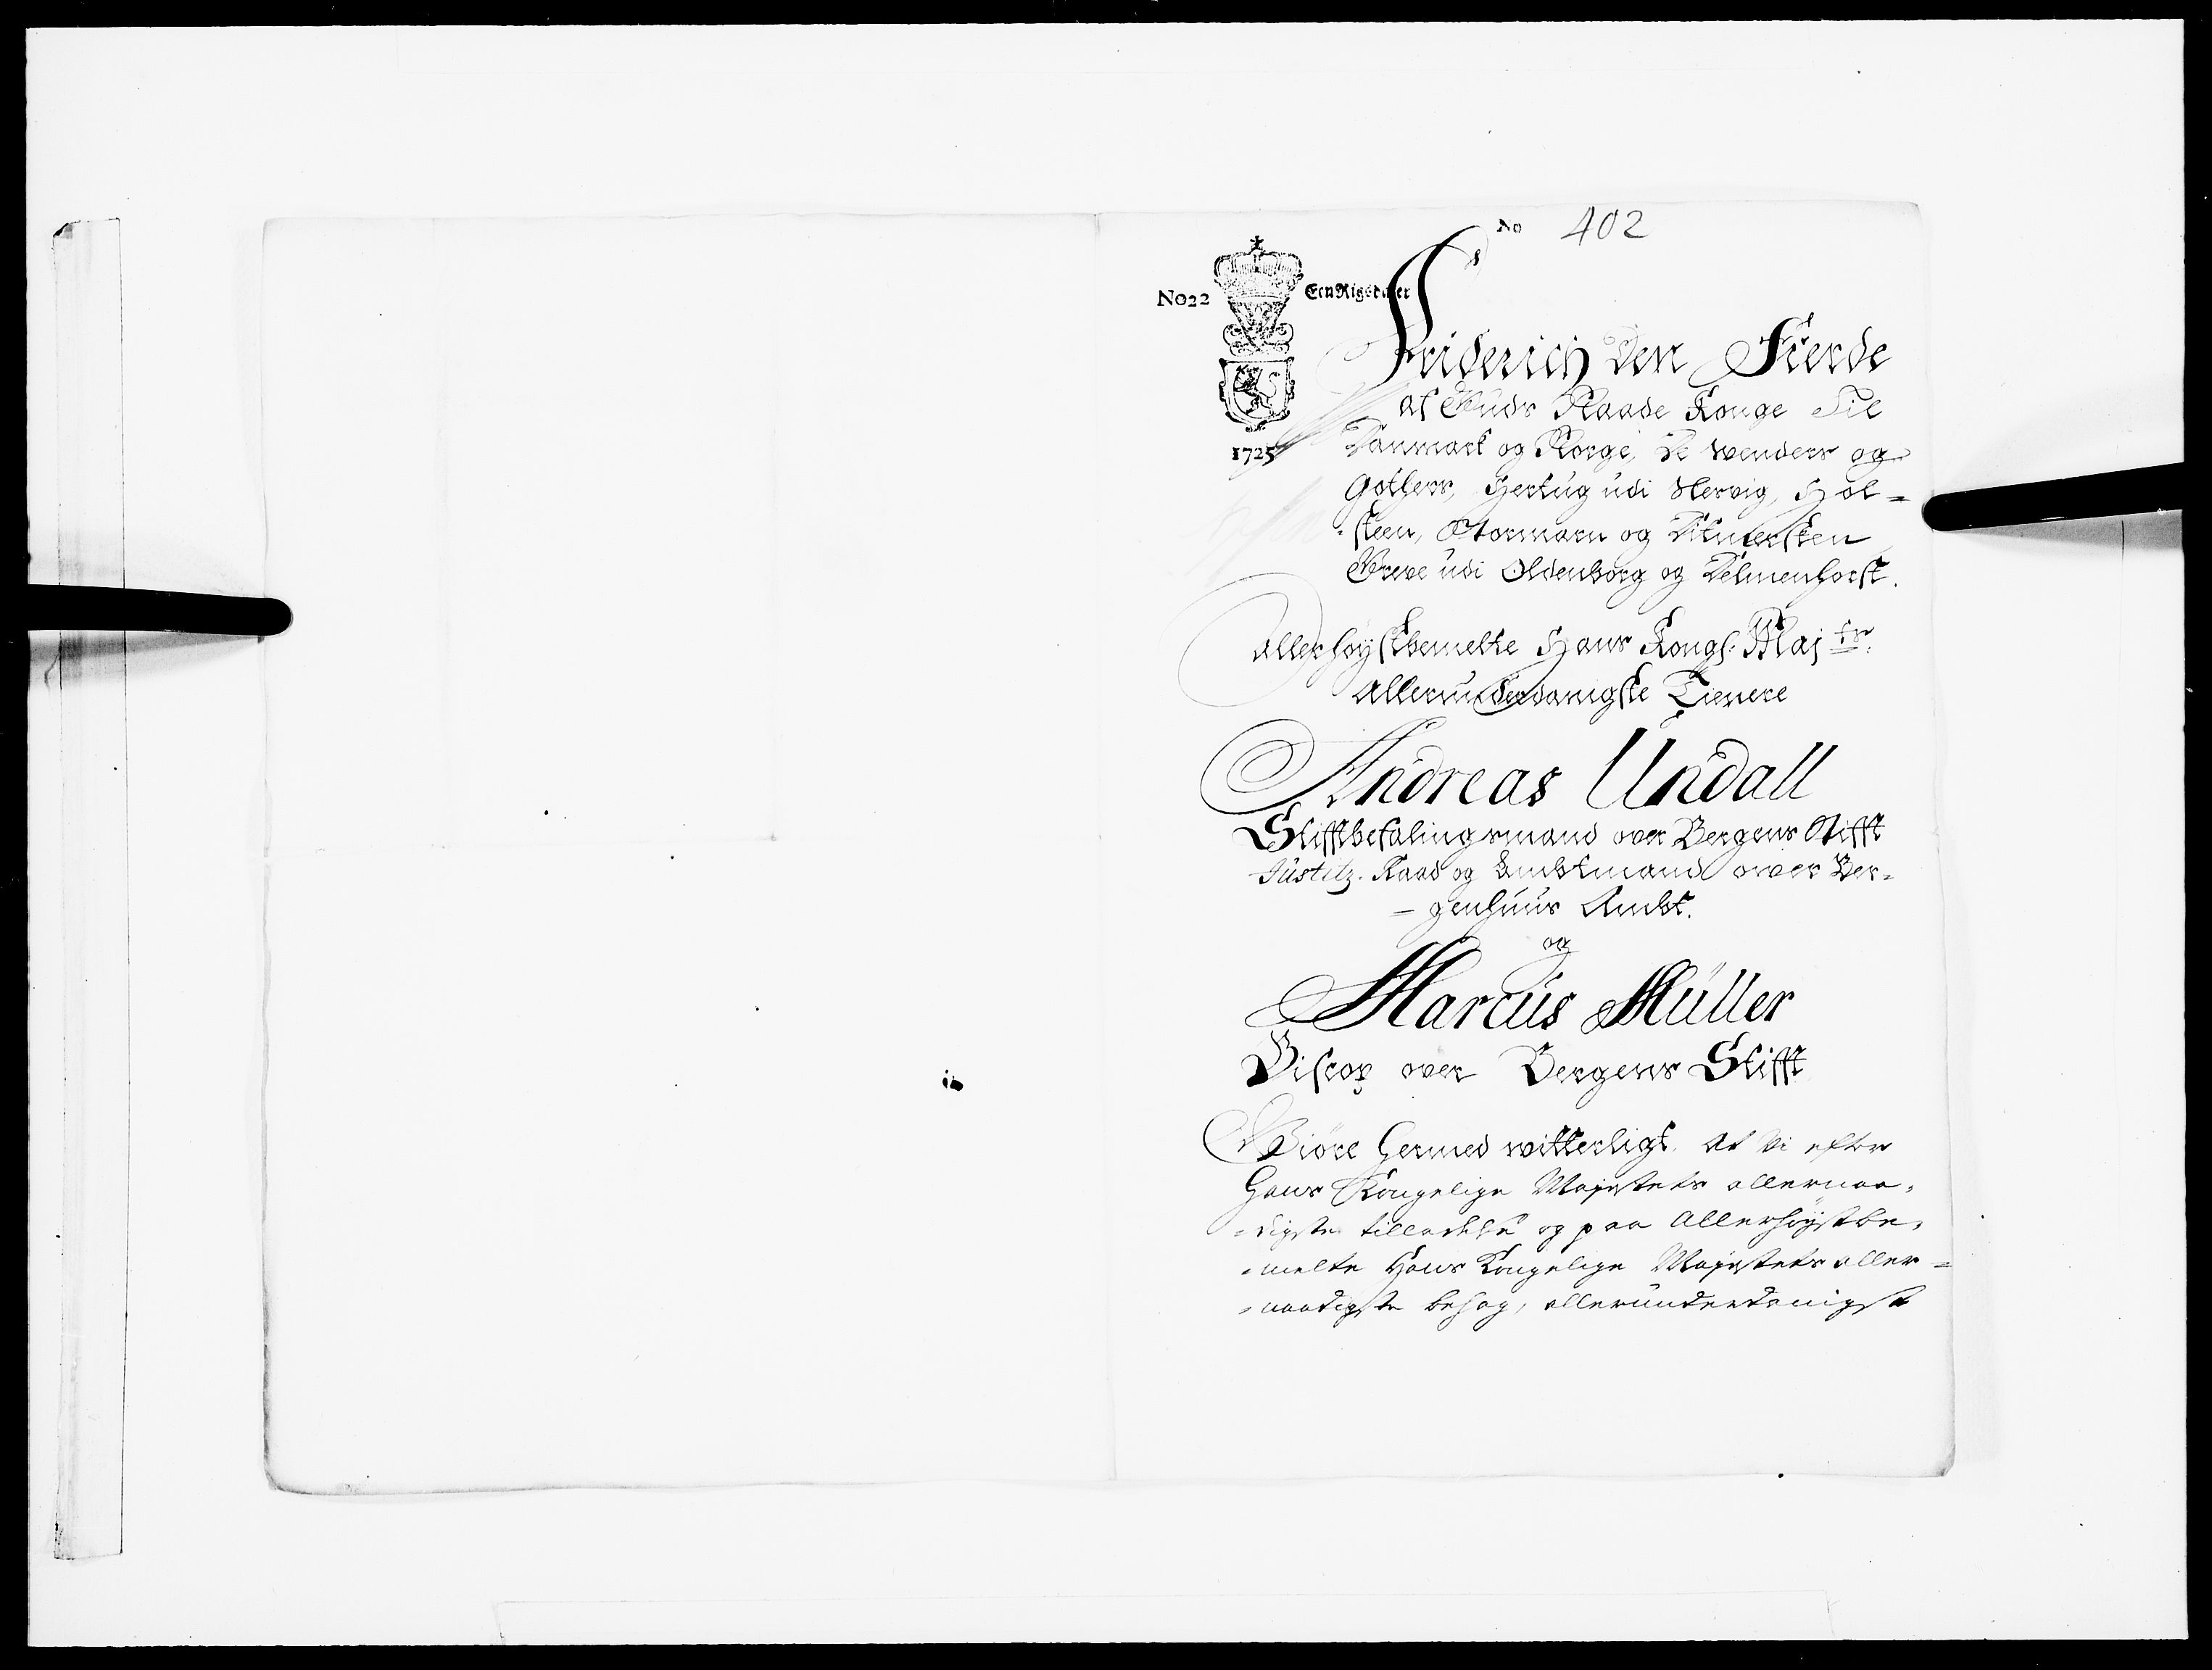 No 402
No 22 Een Rigsdaler
1725
Friderich den Fierde
af Guds Naade Konge Til
Danmark og Norge, De Wenders og
Gothers, Hertug udi Slesvig, Hol=
=steen, Stormarn og Ditmersken
Greve udi Oldenborg og Delmenhorst.
Allerhøystbemelte Hans Kongl. Majts.
Allerunderdanigste Tienere
Andreas Undall
Stifftbefalingsmand over Bergens Stifft
Justitz-Raad og Ambtmand over Ber=
=genhuus Ambt.
og
Marcus Müller
Biscop over Bergens Stifft
Giöre hermed witterligt. At Vi efter
Hans Kongelige Majestets allernaa=
=digste tilladelse og paa Allerhøystbe=
=melte Hans Kongelige Majestets aller=
=naadigste behag, allerunderdanigst